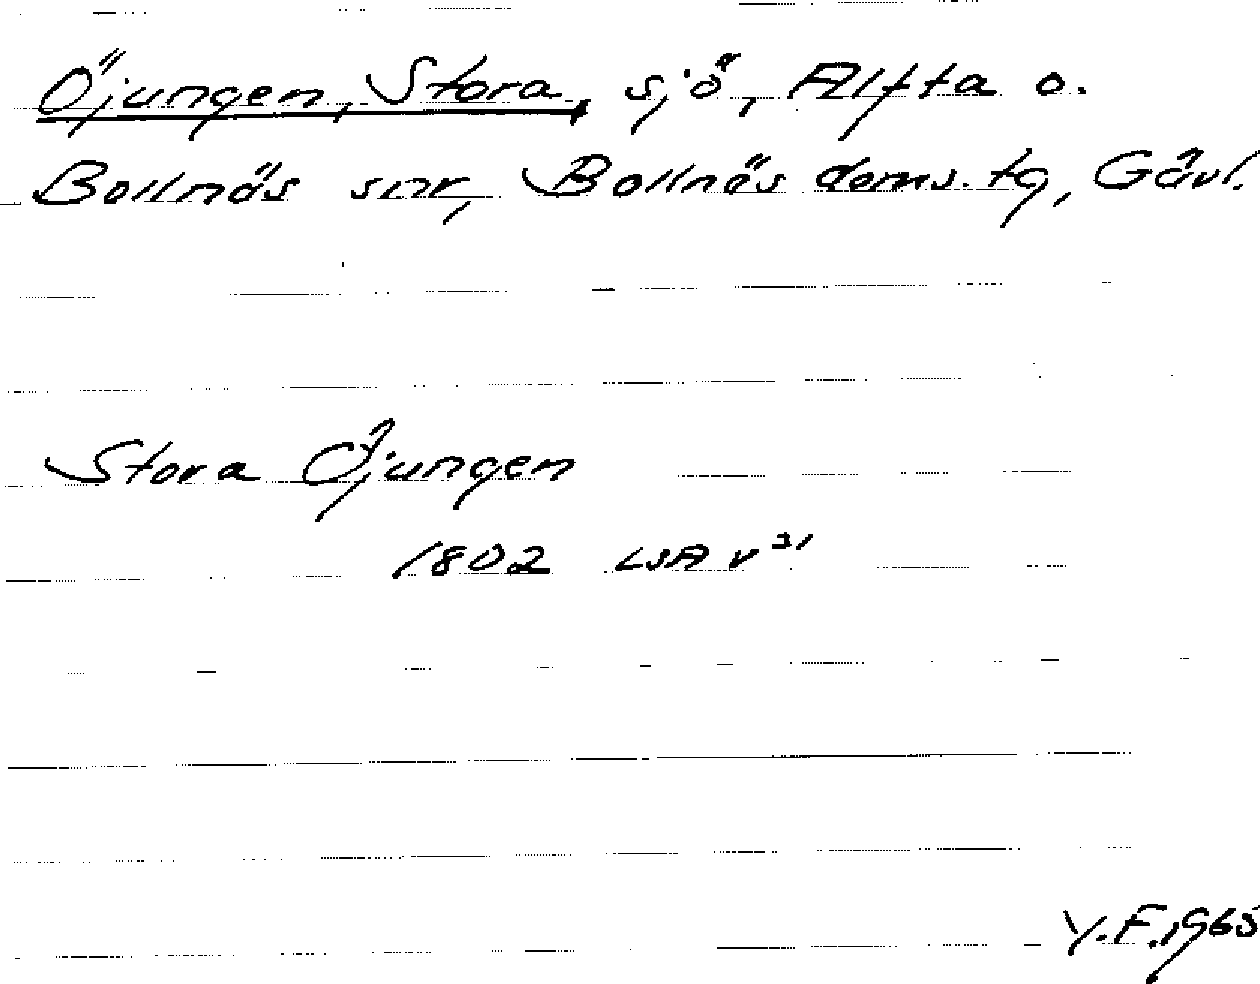 Öjungen, Stora, sjö, Alfta o.
Bollnäs snr, Bollnäs doms. tg, Gävl.
Stora Öjungen
1802 LSA v 21
Y.F. 1965